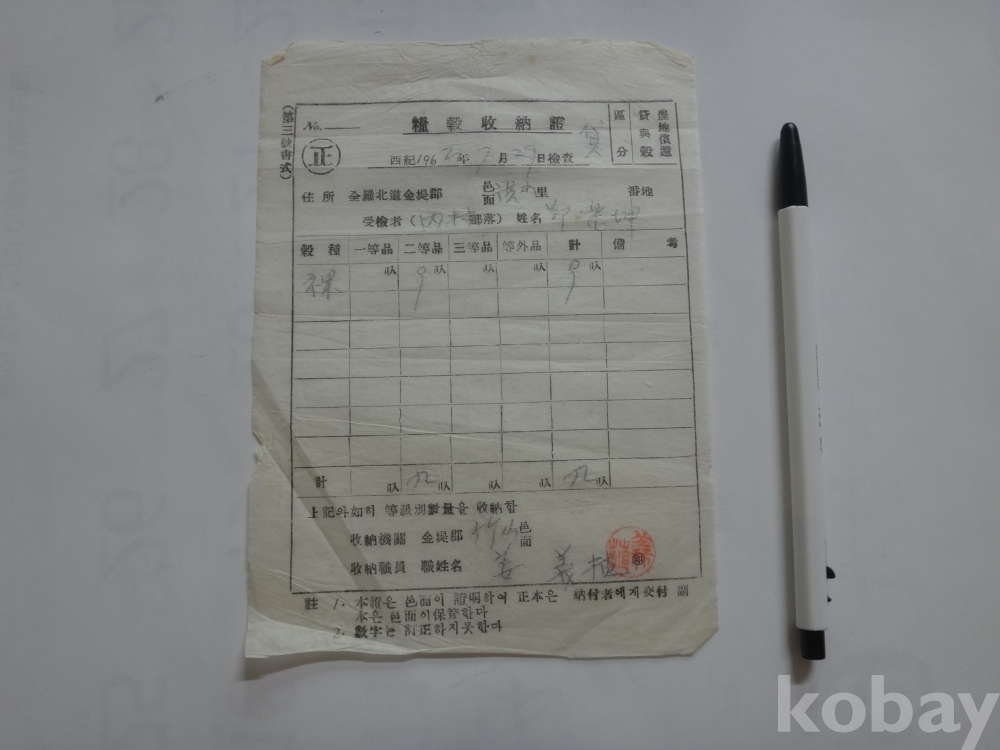 (第三號書式)
No.
糧穀收納證
區分
貸與穀
農地償還
正
西紀196 年 月 29日檢査
住所 全羅北道金堤郡 邑面 里 番地
受檢者 ( 部落) 姓名 坤
穀種 一等品 二等品 三等品 等外品 計 備考
叺 9叺 叺 叺 9叺
計 叺 九叺 叺 叺 九叺
上記와如히 等級別數量을 收納함
收納機關 金堤郡 竹山邑面
收納職員 職姓名 姜 義 ㊞
註 1. 本證은 邑面이 證明하여 正本은 納付者에게交付 副
本은 邑面이保管한다
2. 數字는 訂正하지못한다
kobay